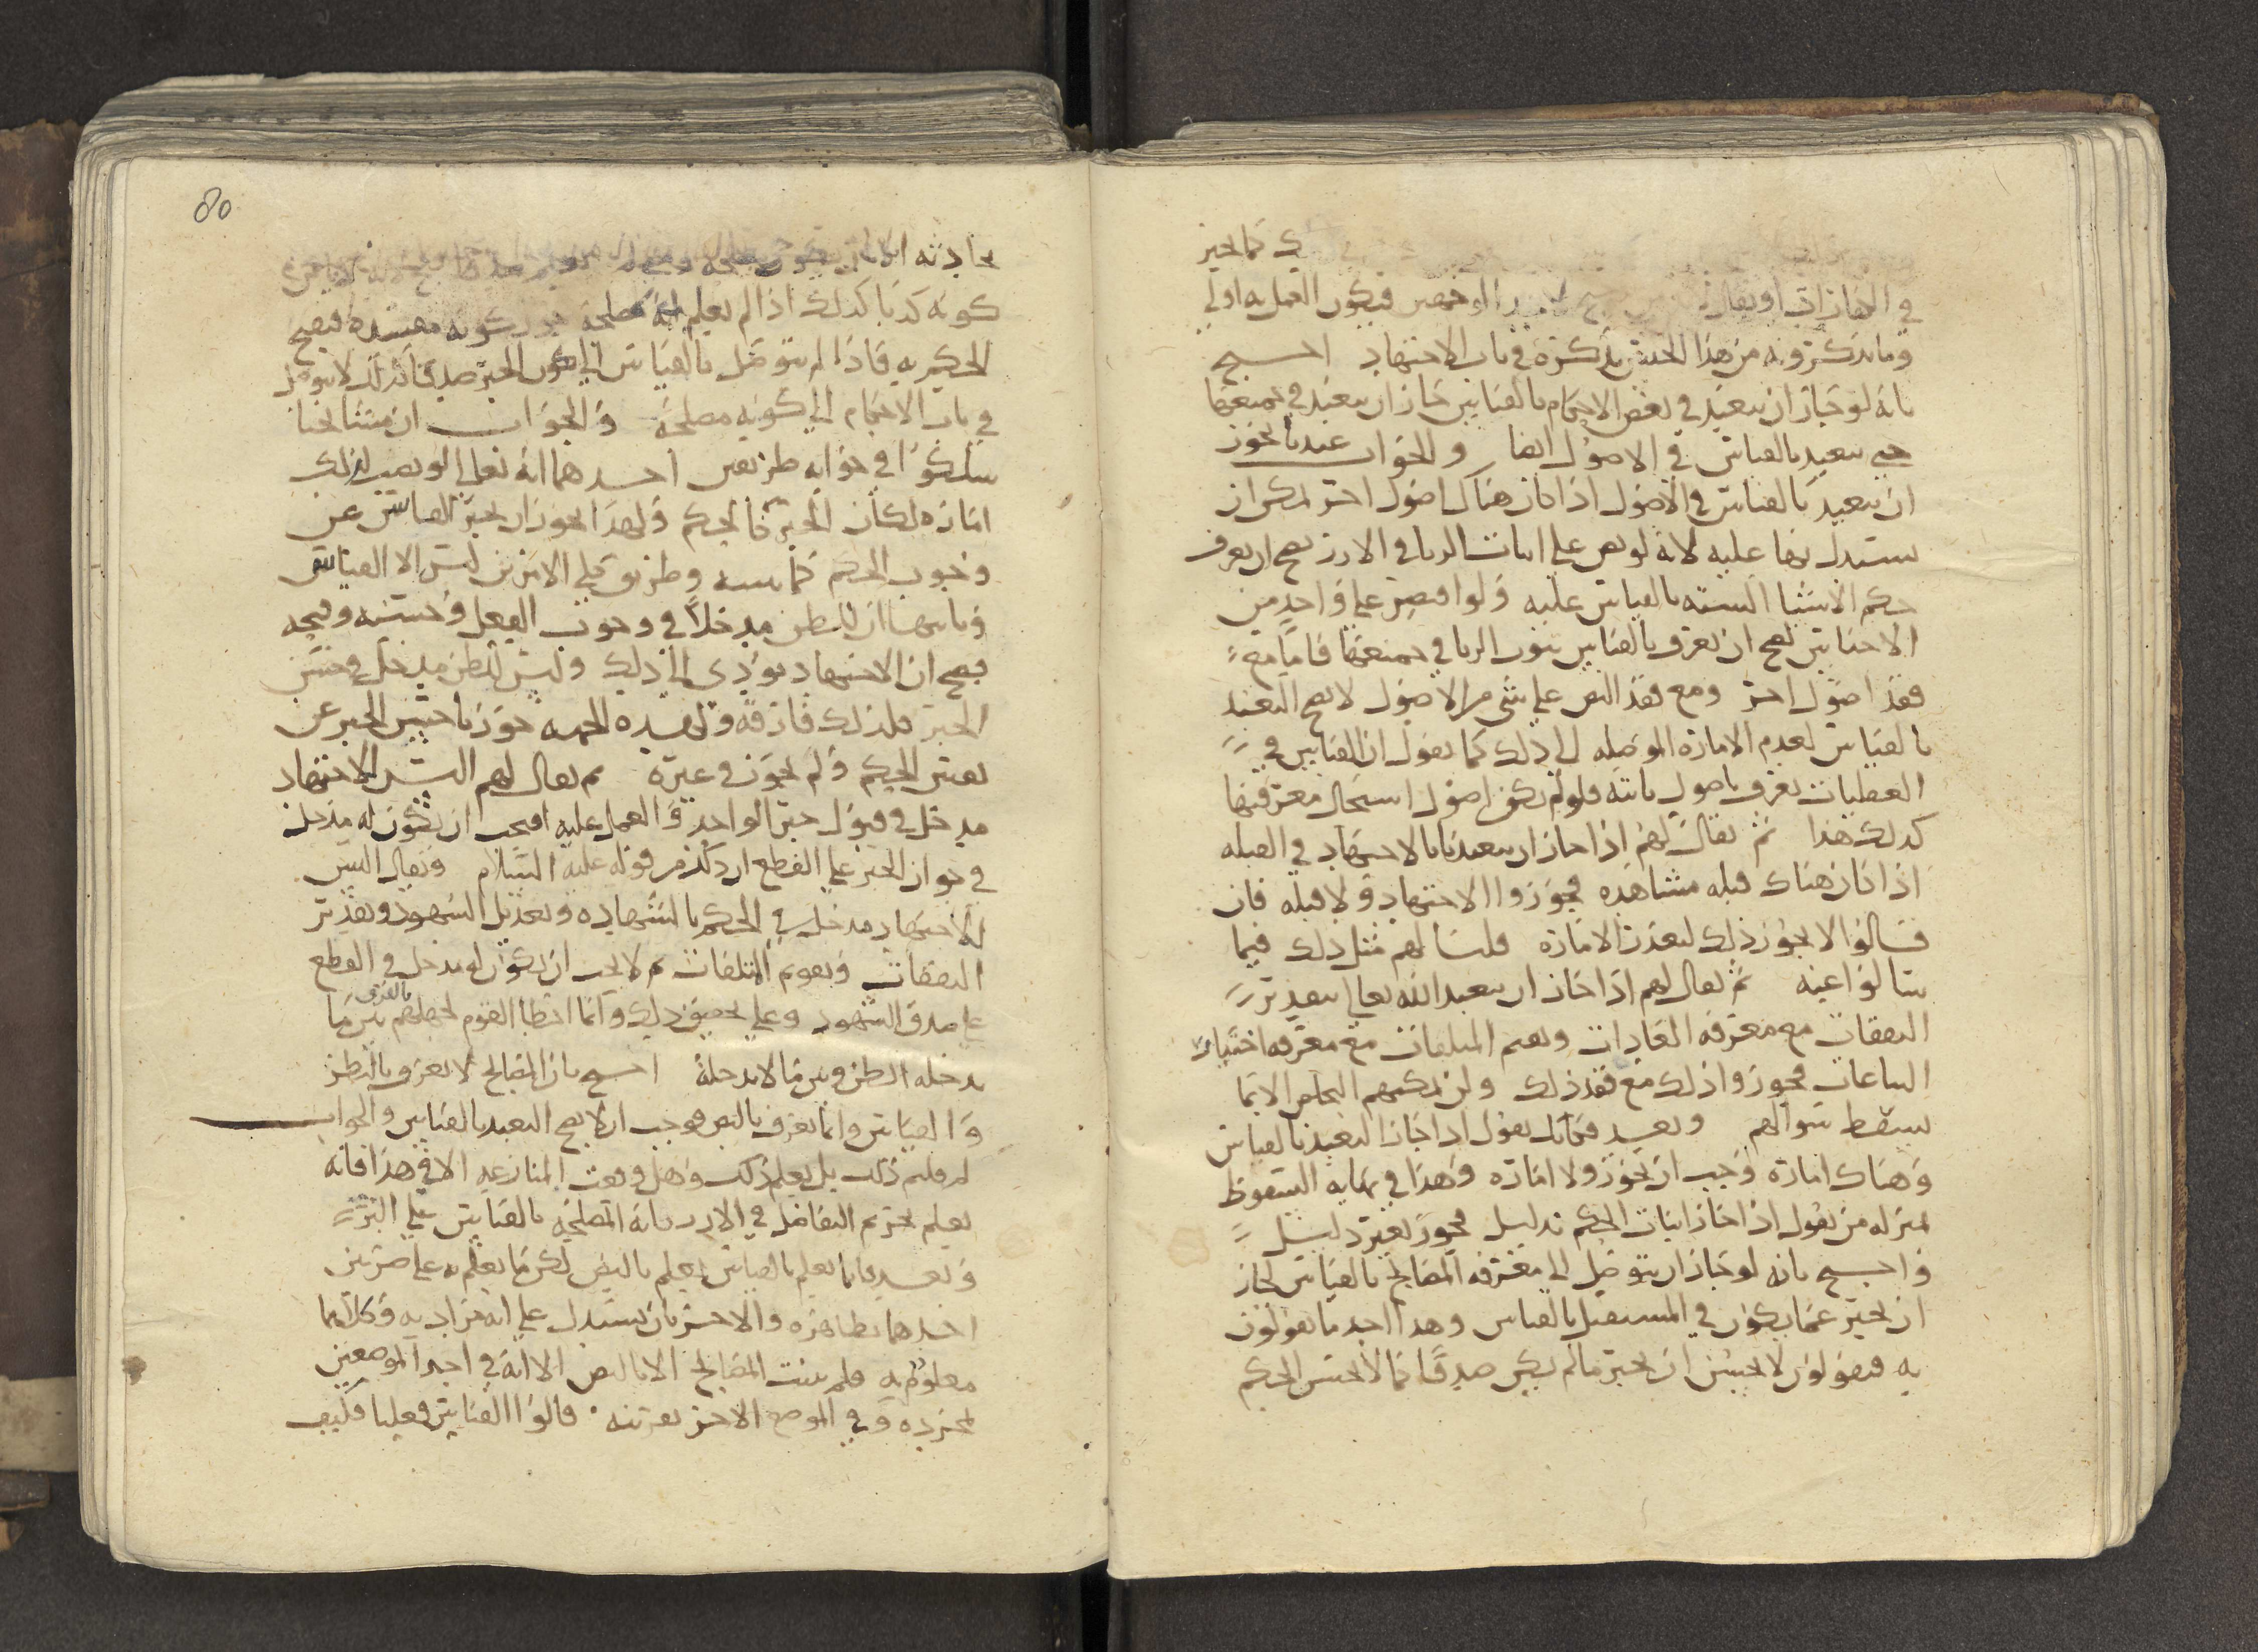 كما يخير
في الكفارات او يقال فيكون العمل به اولى
وما يذكرونه من هذا الجنس نذكره في باب الاجتهاد احتج
بانه لو جاز ان نتعبد في بعض الاحكام بالقياس جاز ان نتعبد في جميعها
حتى نتعبد بالقياس في الاصول ايضا والجواب عندنا يجوز
ان نتعبد بالقياس في الاصول اذا كان هناك اصول اخر يمكن ان
يستدل بها عليه لانه لو نص على اثبات الربا في الارز يصح ان يعرف
حكم الاشيا الستة بالقياس عليه ولو اقتصر على واحد من
الاجناس لصح ان يعرف بالقياس ثبوت الربا في جميعها فاما مع
فقد اصول اخر ومع فقد النص على شي من الاصول لا يصح التعبد
بالقياس لعدم الامارة الموصلة الى ذلك كما نقول ان القياس في
العقليات يعرف باصول ثابتة فلو لم يكن اصول استحال معرفتها
كذلك هذا ثم يقال لهم اذا جاز ان يتعبدنا بالاجتهاد في القبلة
اذا كان هناك قبلة مشاهدة فجوزوا الاجتهاد ولا قبلة فان
قالوا لا يجوز ذلك لتعذر الامارة قلنا لهم مثل ذلك فيما
سالوا عنه ثم يقال لهم اذا جاز ان يتعبد الله تعالى بتقدير
النفقات مع معرفة العادات وتقويم المتلفات مع معرفة اختبار
البياعات فجوزوا ذلك مع فقد ذلك ولن يمكنهم التخلص الا بما
يسقط سوالهم وبعد فقائل يقول اذا جاز التعبد بالقياس
وهناك امارة وجب ان يجوز ولا امارة وهذا في نهاية السقوط
بمنزلة من يقول اذا جاز اثبات الحكم بدليل فجوز بغير دليل
واحتج بانه لو جاز ان يتوصل الى معرفة المصالح بالقياس لجاز
ان يخبر عما يكون في المستقبل بالقياس وهذا احد ما يقولون
به فيقولون لا يحسن ان يخبر ما لم يكن صدقا كما لا يحسن الحكم
80
بحادثة الا ان
كونه كذبا كذلك اذا لم يعلم انه مصلحة جوز كونه مفسدة فيقبح
الحكم به فاذا لم يتوصل بالقياس الى كون الخبر صدقا كذلك لا يتوصل
في باب الاحكام الى كونه مصلحة والجواب ان مشايخنا
سلكوا في جوابه طريقين احدهما انه تعالى لو نصب لذلك
امارة لكان الخبر كالحكم ولهذا يجوز ان يخبر القايس عن
وجوب الحكم كما وطريق كلي الامرين ليس الا القياس
وثانيها ان للظن مدخلا في وجوب الفعل وحسنه وقبحه
فصح ان الاجتهاد يؤدي الى ذلك وليس للظن مدخل في حسن
الخبر فلذلك فارقه ولهذه الجملة جوزنا حسن الخبر عن
نفس الحكم ولم يجوز في غيره ثم يقال لهم اليس للاجتهاد
مدخل في قبول خبر الواحد والعمل عليه افيجب ان يكون له مدخل
في جواز الخبر على القطع ان ذلك من قوله عليه السلام ويقال اليس
للاجتهاد مدخل في الحكم بالشهادة وتعديل الشهود وتقدير
النفقات وتقويم المتلفات ثم لا يجب ان يكون له مدخل في القطع
على صدق الشهود وعلى تحقيق ذلك وانما اخطا القوم لجهلهم بالفرق بين ما
يدخله الظن وبين ما لا يدخله احتج بان المصالح لا تعرف بالظن
والقياس وانما تعرف بالنص فوجب ان لا يصح التعبد بالقياس والجواب
لم قلتم ذلك بل يعلم ذلك وهل وقعت المنازعة الا في هذا فانه
يعلم تحريم التفاضل في الارز بانه المصلحة بالقياس على البر
وبعد فما يعلم بالقياس يعلم بالنص لكن ما يعلم به على ضربين
احدهما بظاهره والاخر بان يستدل على انه مراد به وكلاهما
معلوم به فلم تثبت المصالح الا بالنص الا انه في احد الموضعين
بمجرده وفي الموضع الاخر بقرينة قالوا القياس فعلنا فكيف